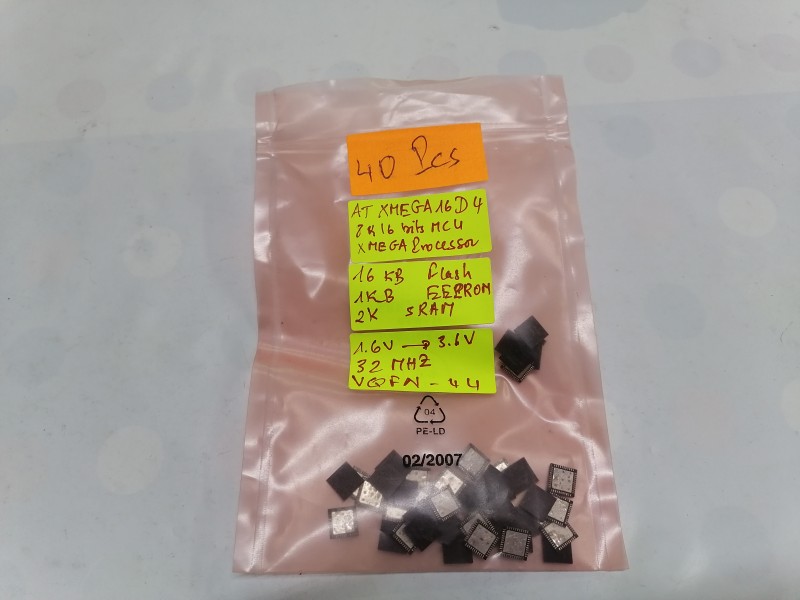 40 Pcs
AT XMEGA16D4
8 & 16 bits MCU
XMEGA Processor
16 KB Flash
1KB EEPROM
2K SRAM
1.6V → 3.6V
32 MHZ
VQFN - 44
04
PE-LD
02/2007